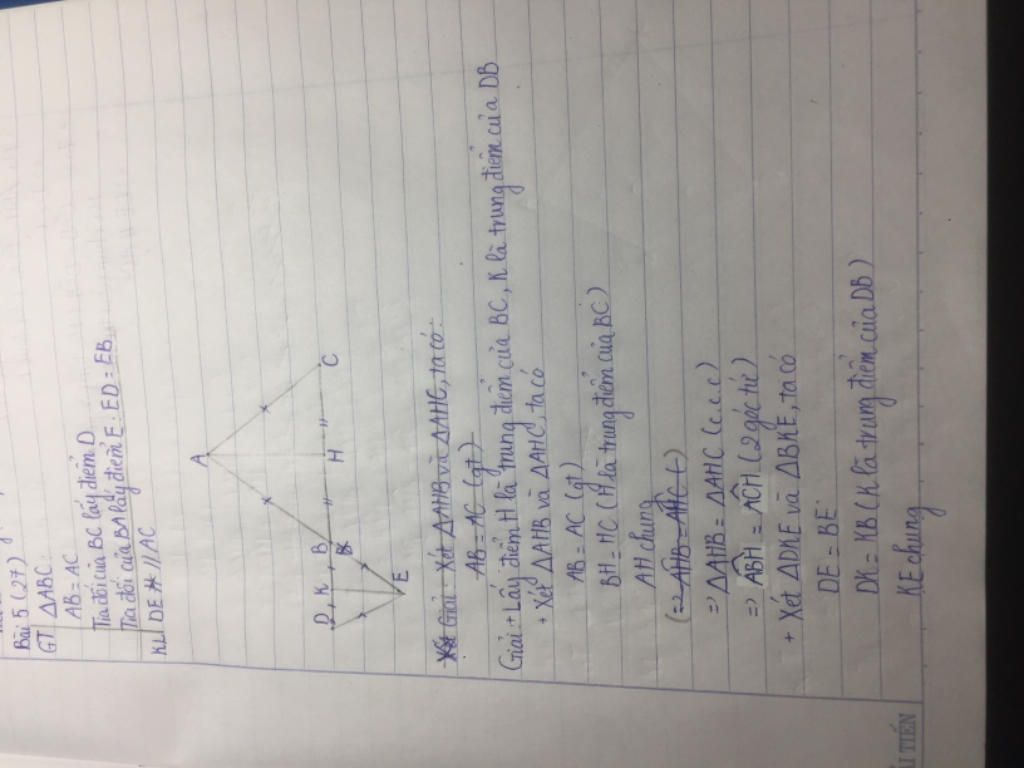 Bài 5 (27)
GT ΔABC:
AB = AC
Tia đối của BC lấy điểm D
Tia đối của BA lấy điểm E: ED = EB
KL DE // AC
A
D K B H C
E
Giải - Xét ΔAHB và ΔAHC, ta có:
AB = AC (gt)
Giải: + Lấy điểm H là trung điểm của BC, K là trung điểm của DB
+ Xét ΔAHB và ΔAHC, ta có
AB = AC (gt)
BH = HC (H là trung điểm của BC)
AH chung
(=> AHB = AHC t)
=> ΔAHB = ΔAHC (c.c.c)
=> ABH = ACH (2 góc tứ)
+ Xét ΔDKE và ΔBKE, ta có
DE = BE
DK = KB (K là trung điểm của DB)
KE chung
ẢI TIẾN